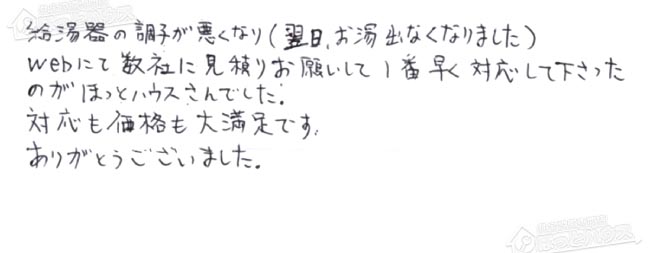 給湯器の調子が悪くなり(翌日、お湯出なくなりました)
webにて数社に見積りお願いして1番早く対応して下さった
のがほっとハウスさんでした。
対応も価格も大満足です。
ありがとうございました。
ほっとハウス